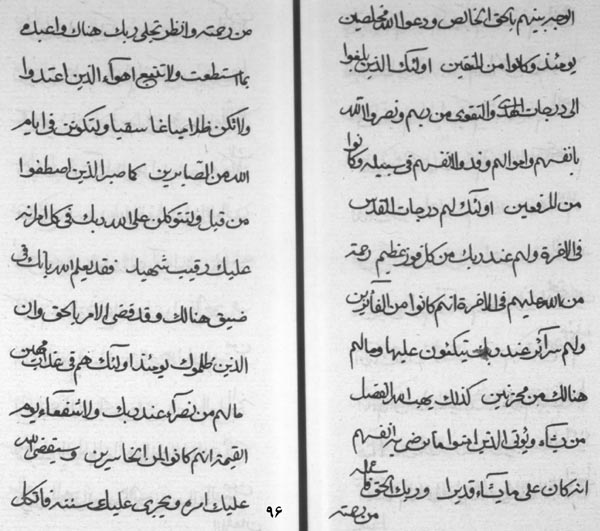 الوجه بينهم بالحق الخالص ودعوا الله مخلصين
يومئذ وكانوا من المتقين اولئك الذين بلغوا
الى درجات الهدى والتقوى من ربهم ونصروا الله
بانفسهم واموالهم وفدوا انفسهم فى سبيله وكانوا
من المرفعين اولئك لهم درجات القدس
فى الاخرة ولهم عند ربك من كل فوز عظيم رحمة
من الله عليهم فى الاخرة انهم كانوا من الفائزين
ولهم سرائر عند ربك يتكئون عليها وما لهم
هنالك من محزنين كذلك يهب الله الفضل
من يشاء ويؤتى الذين امنوا ما ترضى به انفسهم
انه كان على ما يشاء قديرا وربك الحق
من رحمته
من رحمته وانظر تجلى ربك هناك واعبده
بما استطعت ولا تتبع اهواء الذين اعتدوا
ولا تكن ظلاما باغا سقيا ولتكونن فى ايام
الله من الصابرين كما صبر الذين اصطفوا
من قبل ولتتوكلن على الله ربك فى كل امر انه
عليك رقيب شهيد فقد يعلم الله بانك فى
ضيق هنالك وقد قضى الامر بالحق وان
الذين ظلموك يومئذ اولئك هم فى عذاب مهين
ما لهم من نصراء عند ربك ولا شفعاء يوم
القيمة انهم كانوا لمن الخاسرين وسيقضى الله
عليك امره ويجرى عليك سننه فاتكل
٩۶